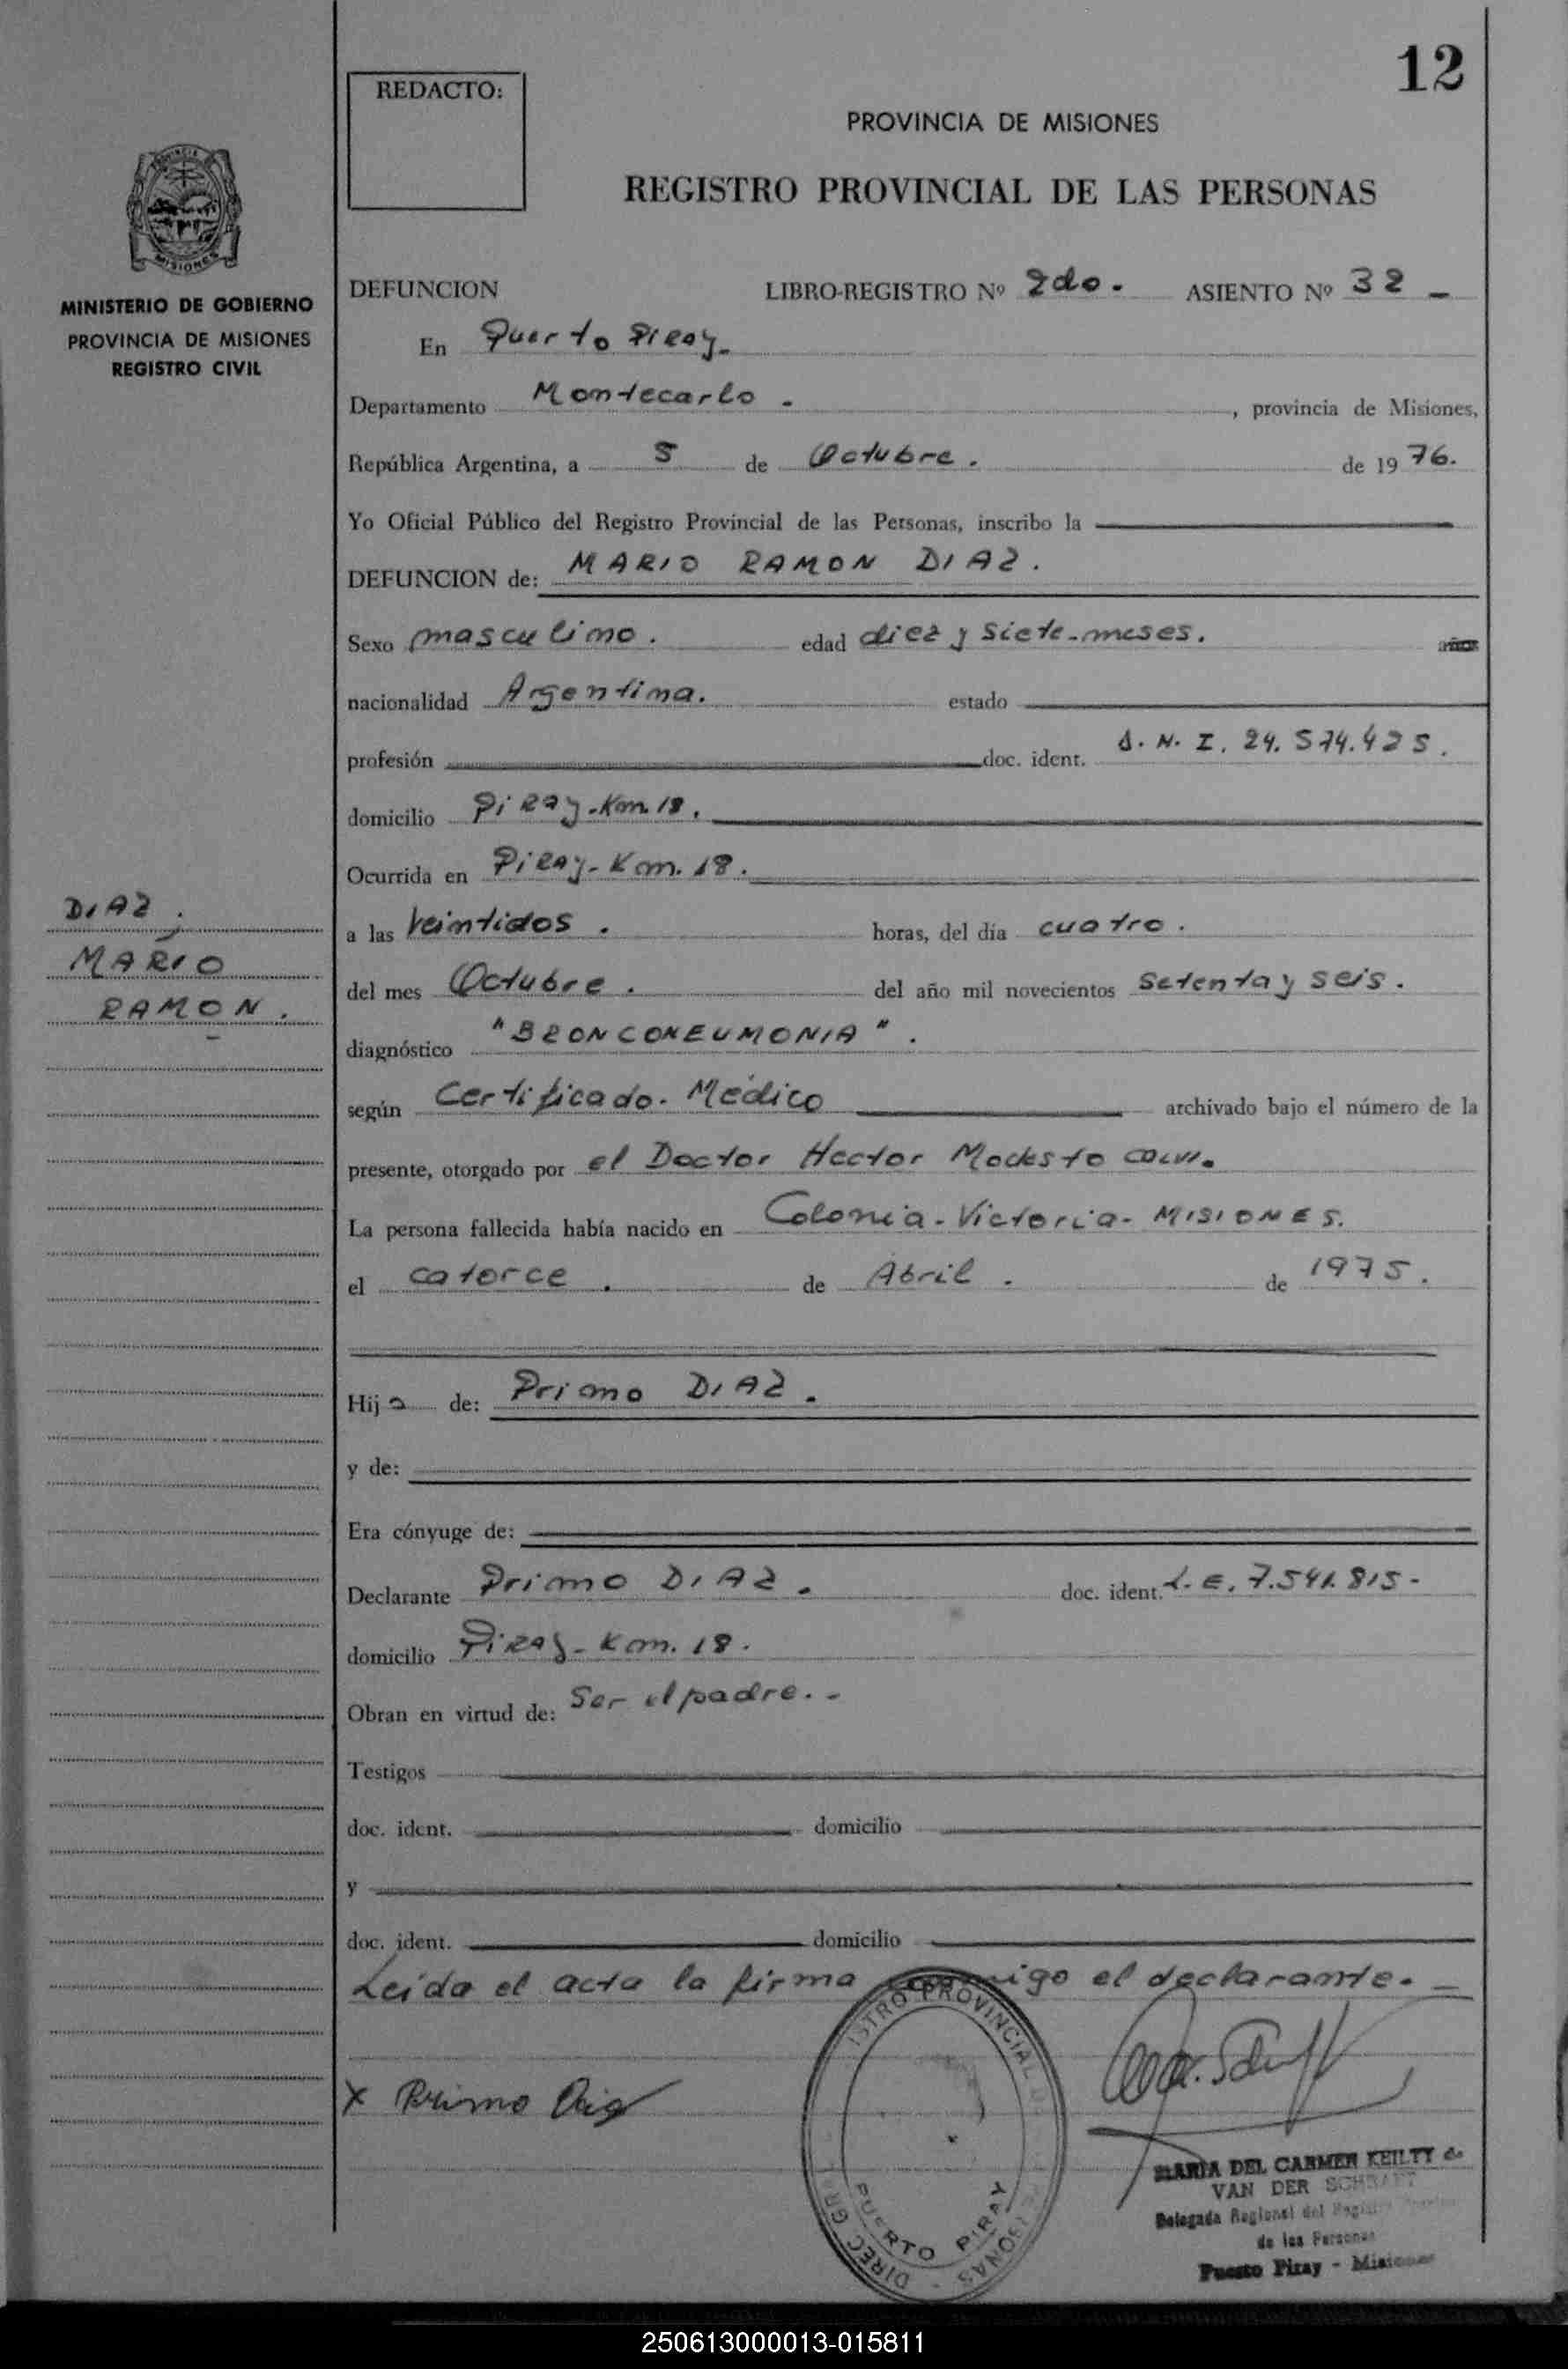 12
REDACTO:
PROVINCIA DE MISIONES
REGISTRO PROVINCIAL DE LAS PERSONAS
MISIONES
MINISTERIO DE GOBIERNO
PROVINCIA DE MISIONES
REGISTRO CIVIL
DEFUNCION LIBRO-REGISTRO Nº 2do. ASIENTO Nº 32 _
En Puerto Piray.
Departamento Montecarlo. , provincia de Misiones,
República Argentina, a 5 de Octubre. de 1976.
Yo Oficial Público del Registro Provincial de las Personas, inscribo la
DEFUNCION de: MARIO RAMON DIAZ.
Sexo masculino. edad diez y siete-meses. años
nacionalidad Argentina. estado
profesión doc. ident. d.N.I. 24.574.425.
domicilio Piray-Km 18.
Ocurrida en Piray-Km. 18.
DIAZ.
MARIO
RAMON.
a las veintidos. horas, del día cuatro.
del mes Octubre. del año mil novecientos Setenta y seis.
diagnóstico "BRONCONEUMONIA".
según Certificado. Médico archivado bajo el número de la
presente, otorgado por el Doctor Hector Modesto
La persona fallecida había nacido en Colonia-Victoria-MISIONES.
el catorce. de Abril. de 1975.
Hijo de: Primo DIAZ.
y de:
Era cónyuge de:
Declarante Primo DIAZ. doc. ident. L.E. 7.541.815-
domicilio Piray-Km. 18.
Obran en virtud de: Ser el padre.-
Testigos
doc. ident. domicilio
y
doc. ident. domicilio
Leida el acta la firma conmigo el declarante. _
X Primo Diaz
ISTRO PROVINCIAL
PUERTO PIRAY
MARIA DEL CARMEN KEILTY de
VAN DER
Delegada Regional del
de las Personas
Puerto Piray - Misiones
250613000013-015811